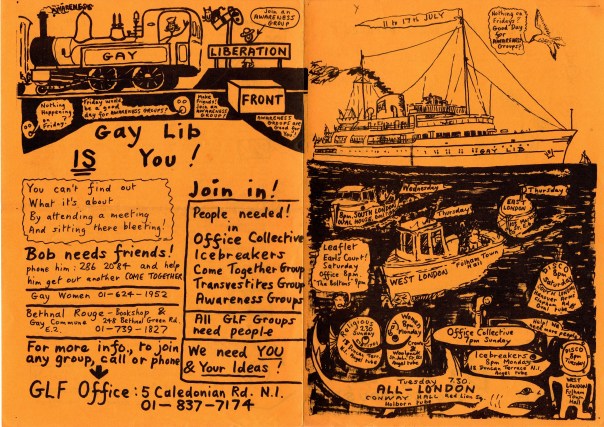 AWARENESS
JOIN AN
AWARENESS
GROUP!
GAY
LIBERATION
FRONT
Nothing
Happening
on
Friday?
Friday would
be a good
day for AWARENESS GROUPS!
Make
friends!
Join an
AWARENESS
GROUP!
AWARENESS GROUPS
are Good
for You!
Gay Lib
IS You!
You can't find out
What it's about
By attending a meeting
And sitting there bleeting!
Bob needs friends!
phone him: 286 2084 and help
him get out another COME TOGETHER
Gay Women 01-624-1952
Bethnal Rouge - Bookshop &
Gay Commune - 248 Bethnal Green Rd.
E.2. 01-739-1827
For more info., to join
any group, call or phone
GLF Office: 5 Caledonian Rd. N.1.
01-837-7174
Join in!
People needed!
in
Office Collective
Icebreakers
Come Together Group
Transvestites Group
Awareness Groups
All GLF Groups
need people
We need YOU
& Your Ideas!
11 to 17th JULY
Nothing on
Fridays?
Good Day
for
AWARENESS
Groups!
GAY LIB
Wednesday
8pm. SOUTH LONDON
OVAL HOUSE
Thursday
WEST LONDON
Fulham Town
Hall
Thursday
EAST
LONDON
Leaflet
Earls Court!
Saturday
Office 8pm.
"The Boltons" 9pm
DISCO
8pm
Saturday
Religious
2.30
Sunday
Women
Monday
Angel tube
Office Collective
7pm Sunday
Help! We
need more people
Icebreakers
8pm Monday
18 Duncan Terrace N.1.
Angel tube
DISCO
WEST
LONDON
Fulham
Town
Hall
Tuesday 7.30.
ALL-LONDON
CONWAY HALL Red Lion Sq.
Holborn tube